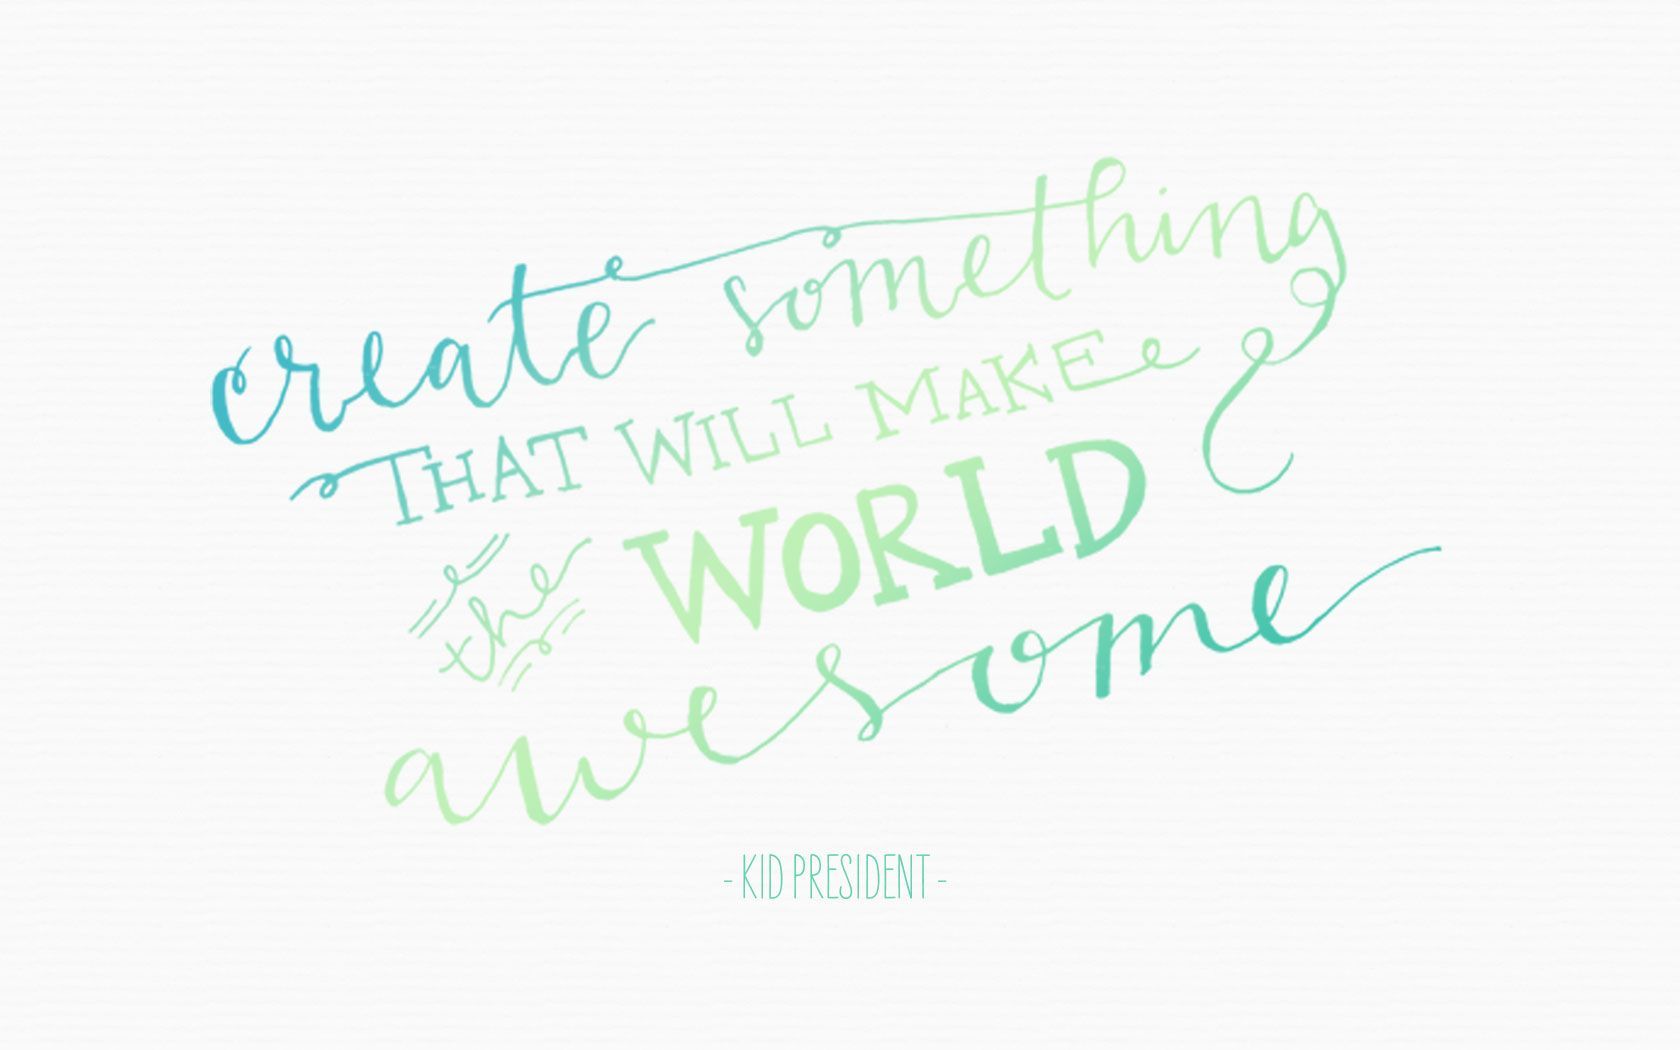 create something
THAT WILL MAKE
the WORLD
awesome
- KID PRESIDENT -